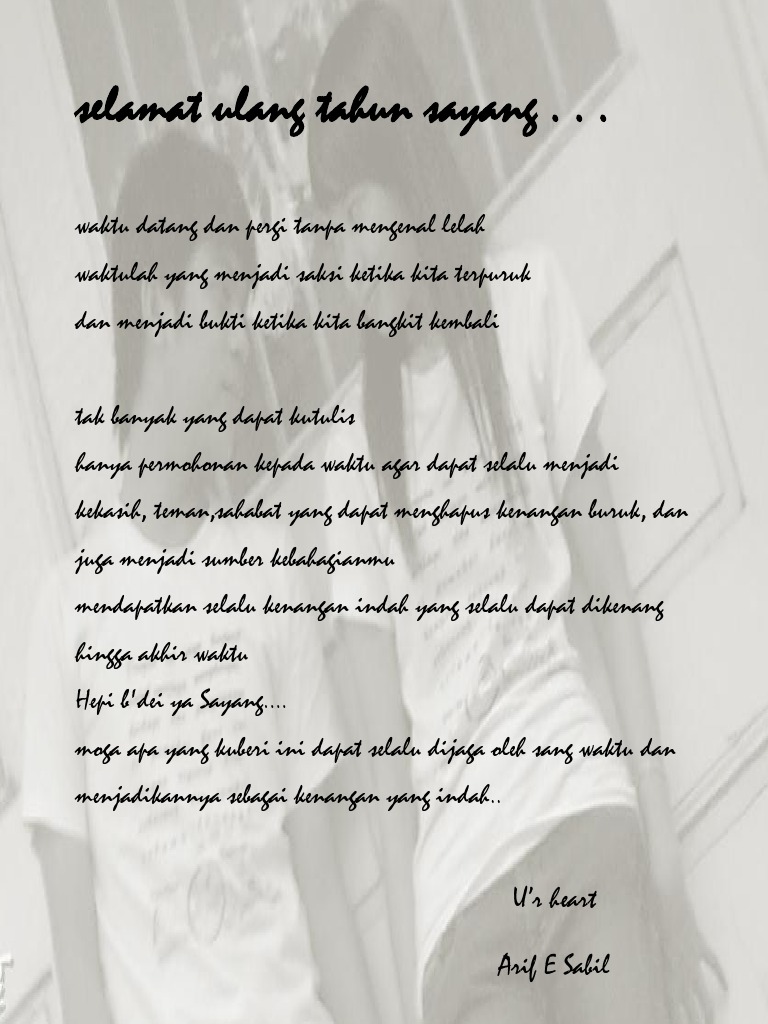 selamat ulang tahun sayang . . .
waktu datang dan pergi tanpa mengenal lelah
waktulah yang menjadi saksi ketika kita terpuruk
dan menjadi bukti ketika kita bangkit kembali
tak banyak yang dapat kutulis
hanya permohonan kepada waktu agar dapat selalu menjadi
kekasih, teman,sahabat yang dapat menghapus kenangan buruk, dan
juga menjadi sumber kebahagianmu
mendapatkan selalu kenangan indah yang selalu dapat dikenang
hingga akhir waktu
Hepi b'dei ya Sayang....
moga apa yang kuberi ini dapat selalu dijaga oleh sang waktu dan
menjadikannya sebagai kenangan yang indah..
U'r heart
Arif E Sabil